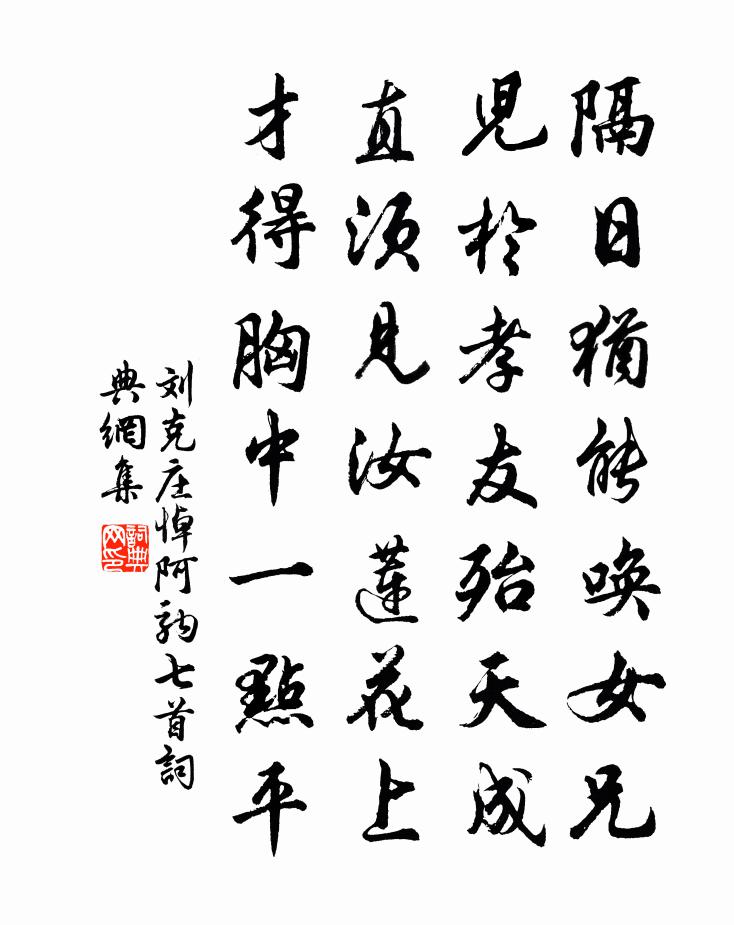 隔日猶能唤女兄
児於孝友殆天成
直須見汝蓮花上
才得胸中一點平
刘克庄悼阿駒七首詞
典網集
詞典
网印